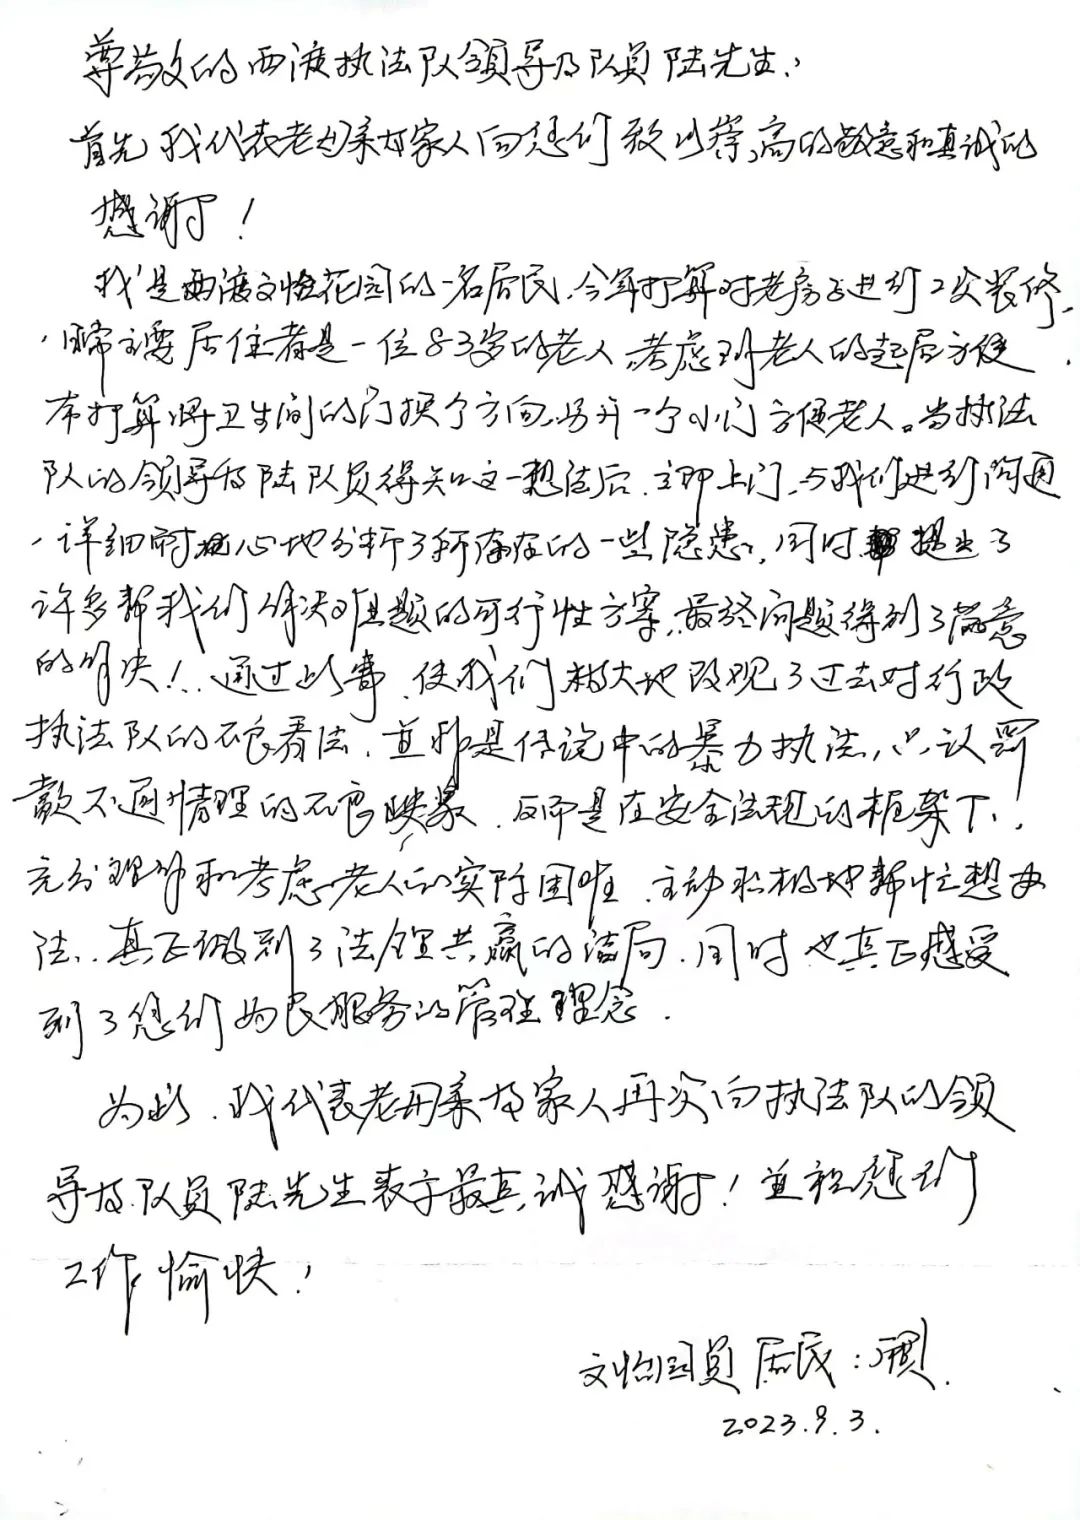 尊敬的西渡执法队领导及队员陆先生:
首先我代表老母亲及家人向您们致以崇高的敬意和真诚的
感谢!
我是西渡文怡花园的一名居民,今年打算对老房子进行2次装修,
因常主要居住者是一位83岁的老人,考虑到老人的起居方便
本打算将卫生间的门换个方向,另开一个小门方便老人。当执法
队的领导及陆队员得知这一想法后,立即上门,与我们进行沟通
,详细耐心地分析了所存在的一些隐患,同时提出了
许多帮我们解决难题的可行性方案,最终问题得到了满意
的解决!通过此事,使我们极大地改观了过去对行政
执法队的不良看法,并非是传说中的暴力执法,只认罚
款不通情理的不良映象,反而是在安全法规的框架下,
充分理解和考虑老人的实际困难,主动积极地帮忙想办
法,真正做到了法理共赢的结局,同时也真正感受
到了您们为民服务的管理理念.
为此,我代表老母亲及家人再次向执法队的领
导及队员陆先生表示最真诚感谢!并祝您们
工作愉快!
文怡园 居民:顾
2023.9.3.